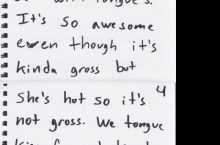 It's so awesome
even though it's
kinda gross but
4
She's hot so it's
not gross. We tongue